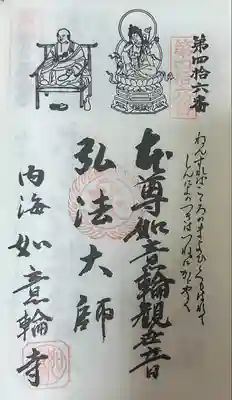 第四拾六番
ねんずればこころのまよひくもはれて
しんによのつきはつねにかがやく
本尊如意輪観世音
弘法大師
内海如意輪寺